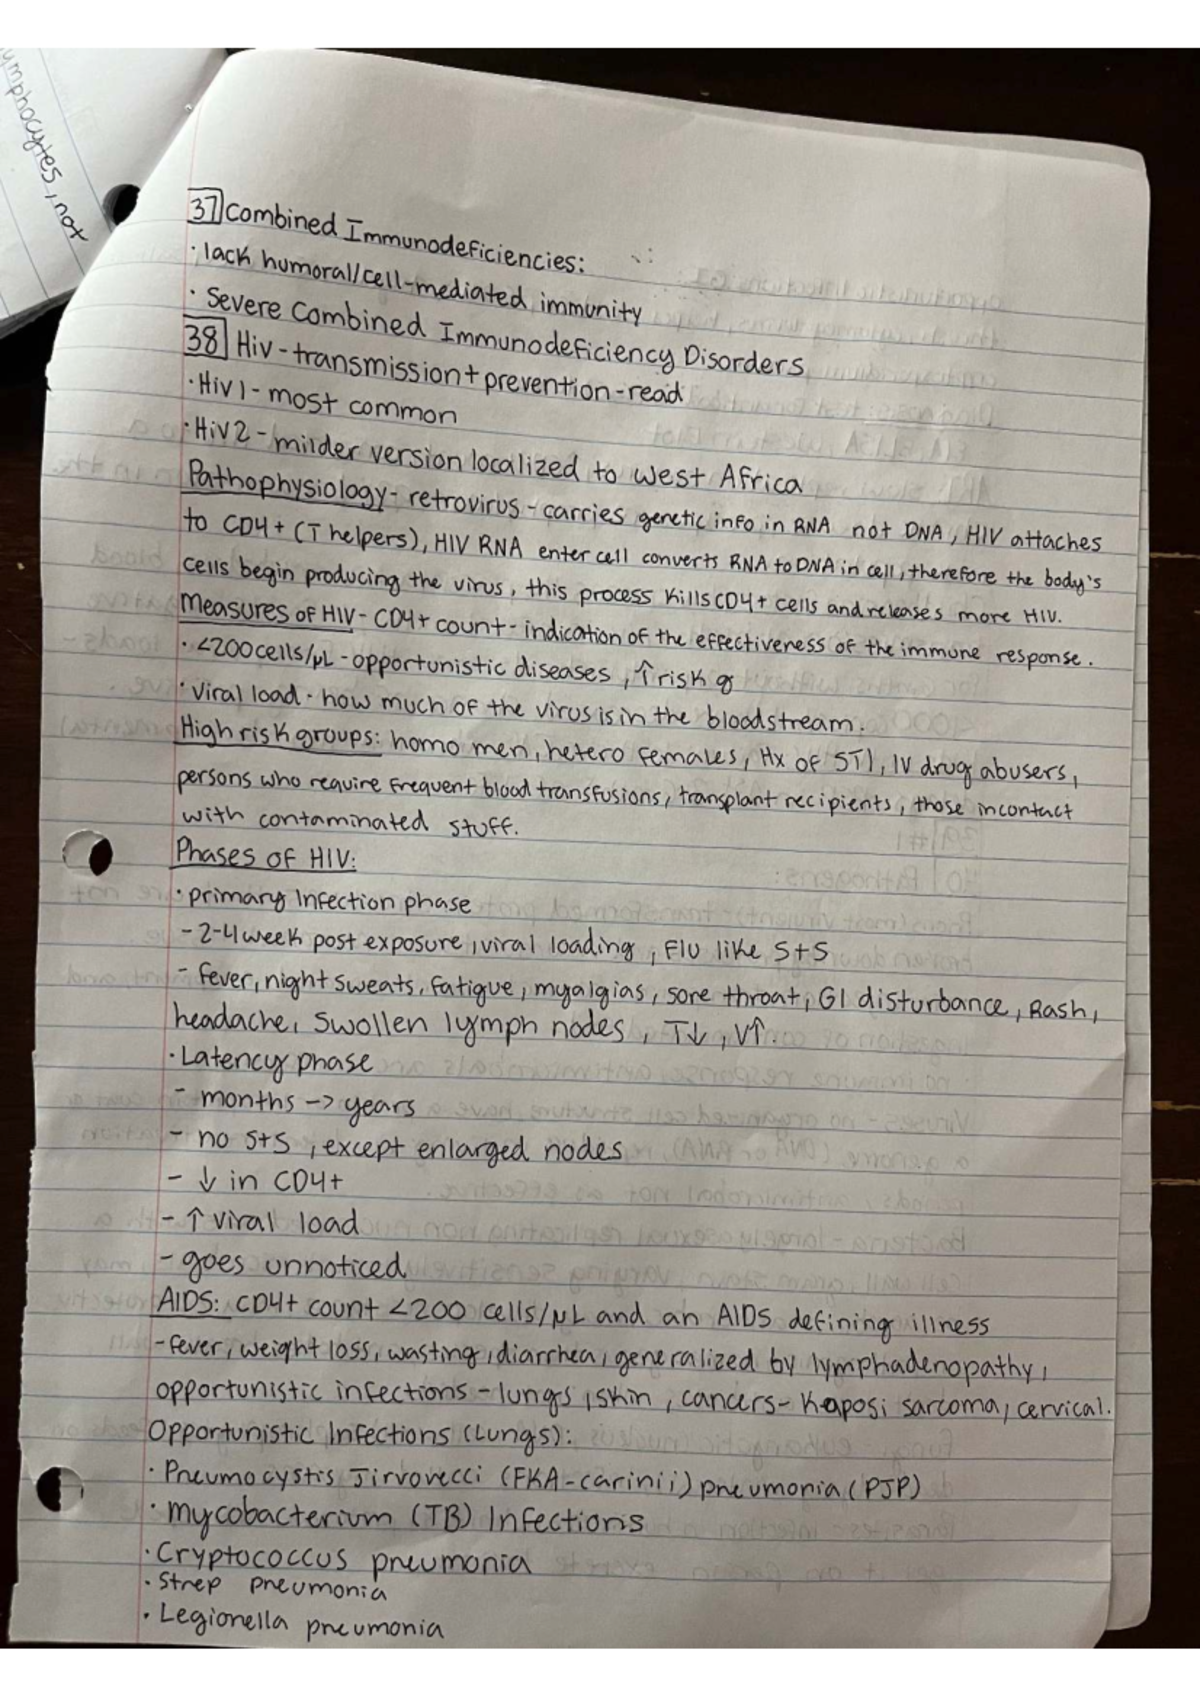 lymphocytes, not
37 Combined Immunodeficiencies:
· lack humoral/cell-mediated immunity
· Severe Combined Immunodeficiency Disorders
38 Hiv - transmission + prevention - read
· HiV 1 - most common
· HiV 2 - milder version localized to West Africa
Pathophysiology - retrovirus - carries genetic info in RNA not DNA, HIV attaches
to CD4+ (T helpers), HIV RNA enter cell converts RNA to DNA in cell, therefore the body's
cells begin producing the virus, this process kills CD4+ cells and releases more HIV.
Measures of HIV - CD4+ count - indication of the effectiveness of the immune response.
· <200 cells/μL - opportunistic diseases, ↑ risk of
· Viral load - how much of the virus is in the bloodstream.
High risk groups: homo men, hetero females, Hx of STI, IV drug abusers,
persons who require frequent blood transfusions, transplant recipients, those in contact
with contaminated stuff.
Phases of HIV:
· primary Infection phase
- 2-4 week post exposure, viral loading, Flu like S+S
- fever, night sweats, fatigue, myalgias, sore throat, GI disturbance, Rash,
headache, swollen lymph nodes, T↓, V↑.
· Latency phase
- months -> years
- no S+S, except enlarged nodes
- ↓ in CD4+
- ↑ viral load
- goes unnoticed
AIDS: CD4+ count <200 cells/μL and an AIDS defining illness
- fever, weight loss, wasting, diarrhea, generalized by lymphadenopathy,
opportunistic infections - lungs, skin, cancers - Kaposi sarcoma, cervical.
Opportunistic Infections (Lungs):
· Pneumocystis Jirvovecci (FKA-carinii) pneumonia (PJP)
· Mycobacterium (TB) Infections
· Cryptococcus pneumonia
· Strep pneumonia
· Legionella pneumonia